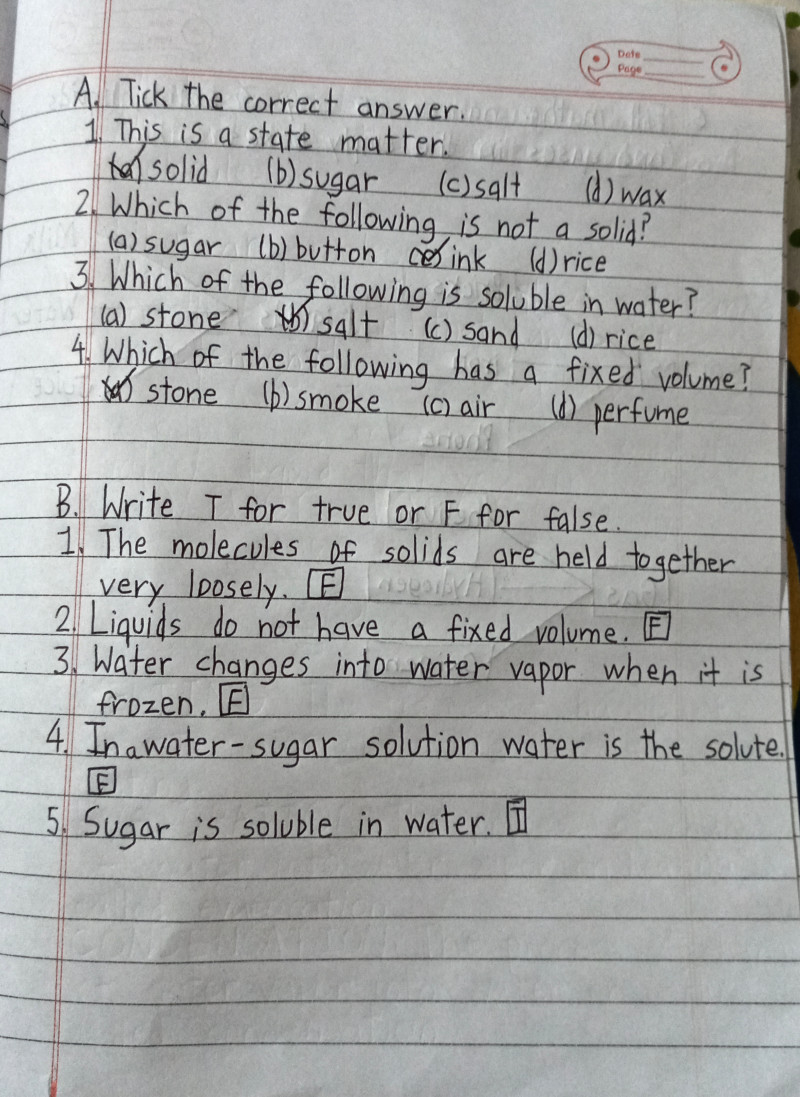 Date
Page
A. Tick the correct answer.
1. This is a state matter.
(a) solid (b) sugar (c) salt (d) wax
2. Which of the following is not a solid?
(a) sugar (b) button (c) ink (d) rice
3. Which of the following is soluble in water?
(a) stone (b) salt (c) sand (d) rice
4. Which of the following has a fixed volume?
(a) stone (b) smoke (c) air (d) perfume
B. Write T for true or F for false.
1. The molecules of solids are held together
very loosely. F
2. Liquids do not have a fixed volume. F
3. Water changes into water vapor when it is
frozen. F
4. In a water-sugar solution water is the solute.
F
5. Sugar is soluble in water. T